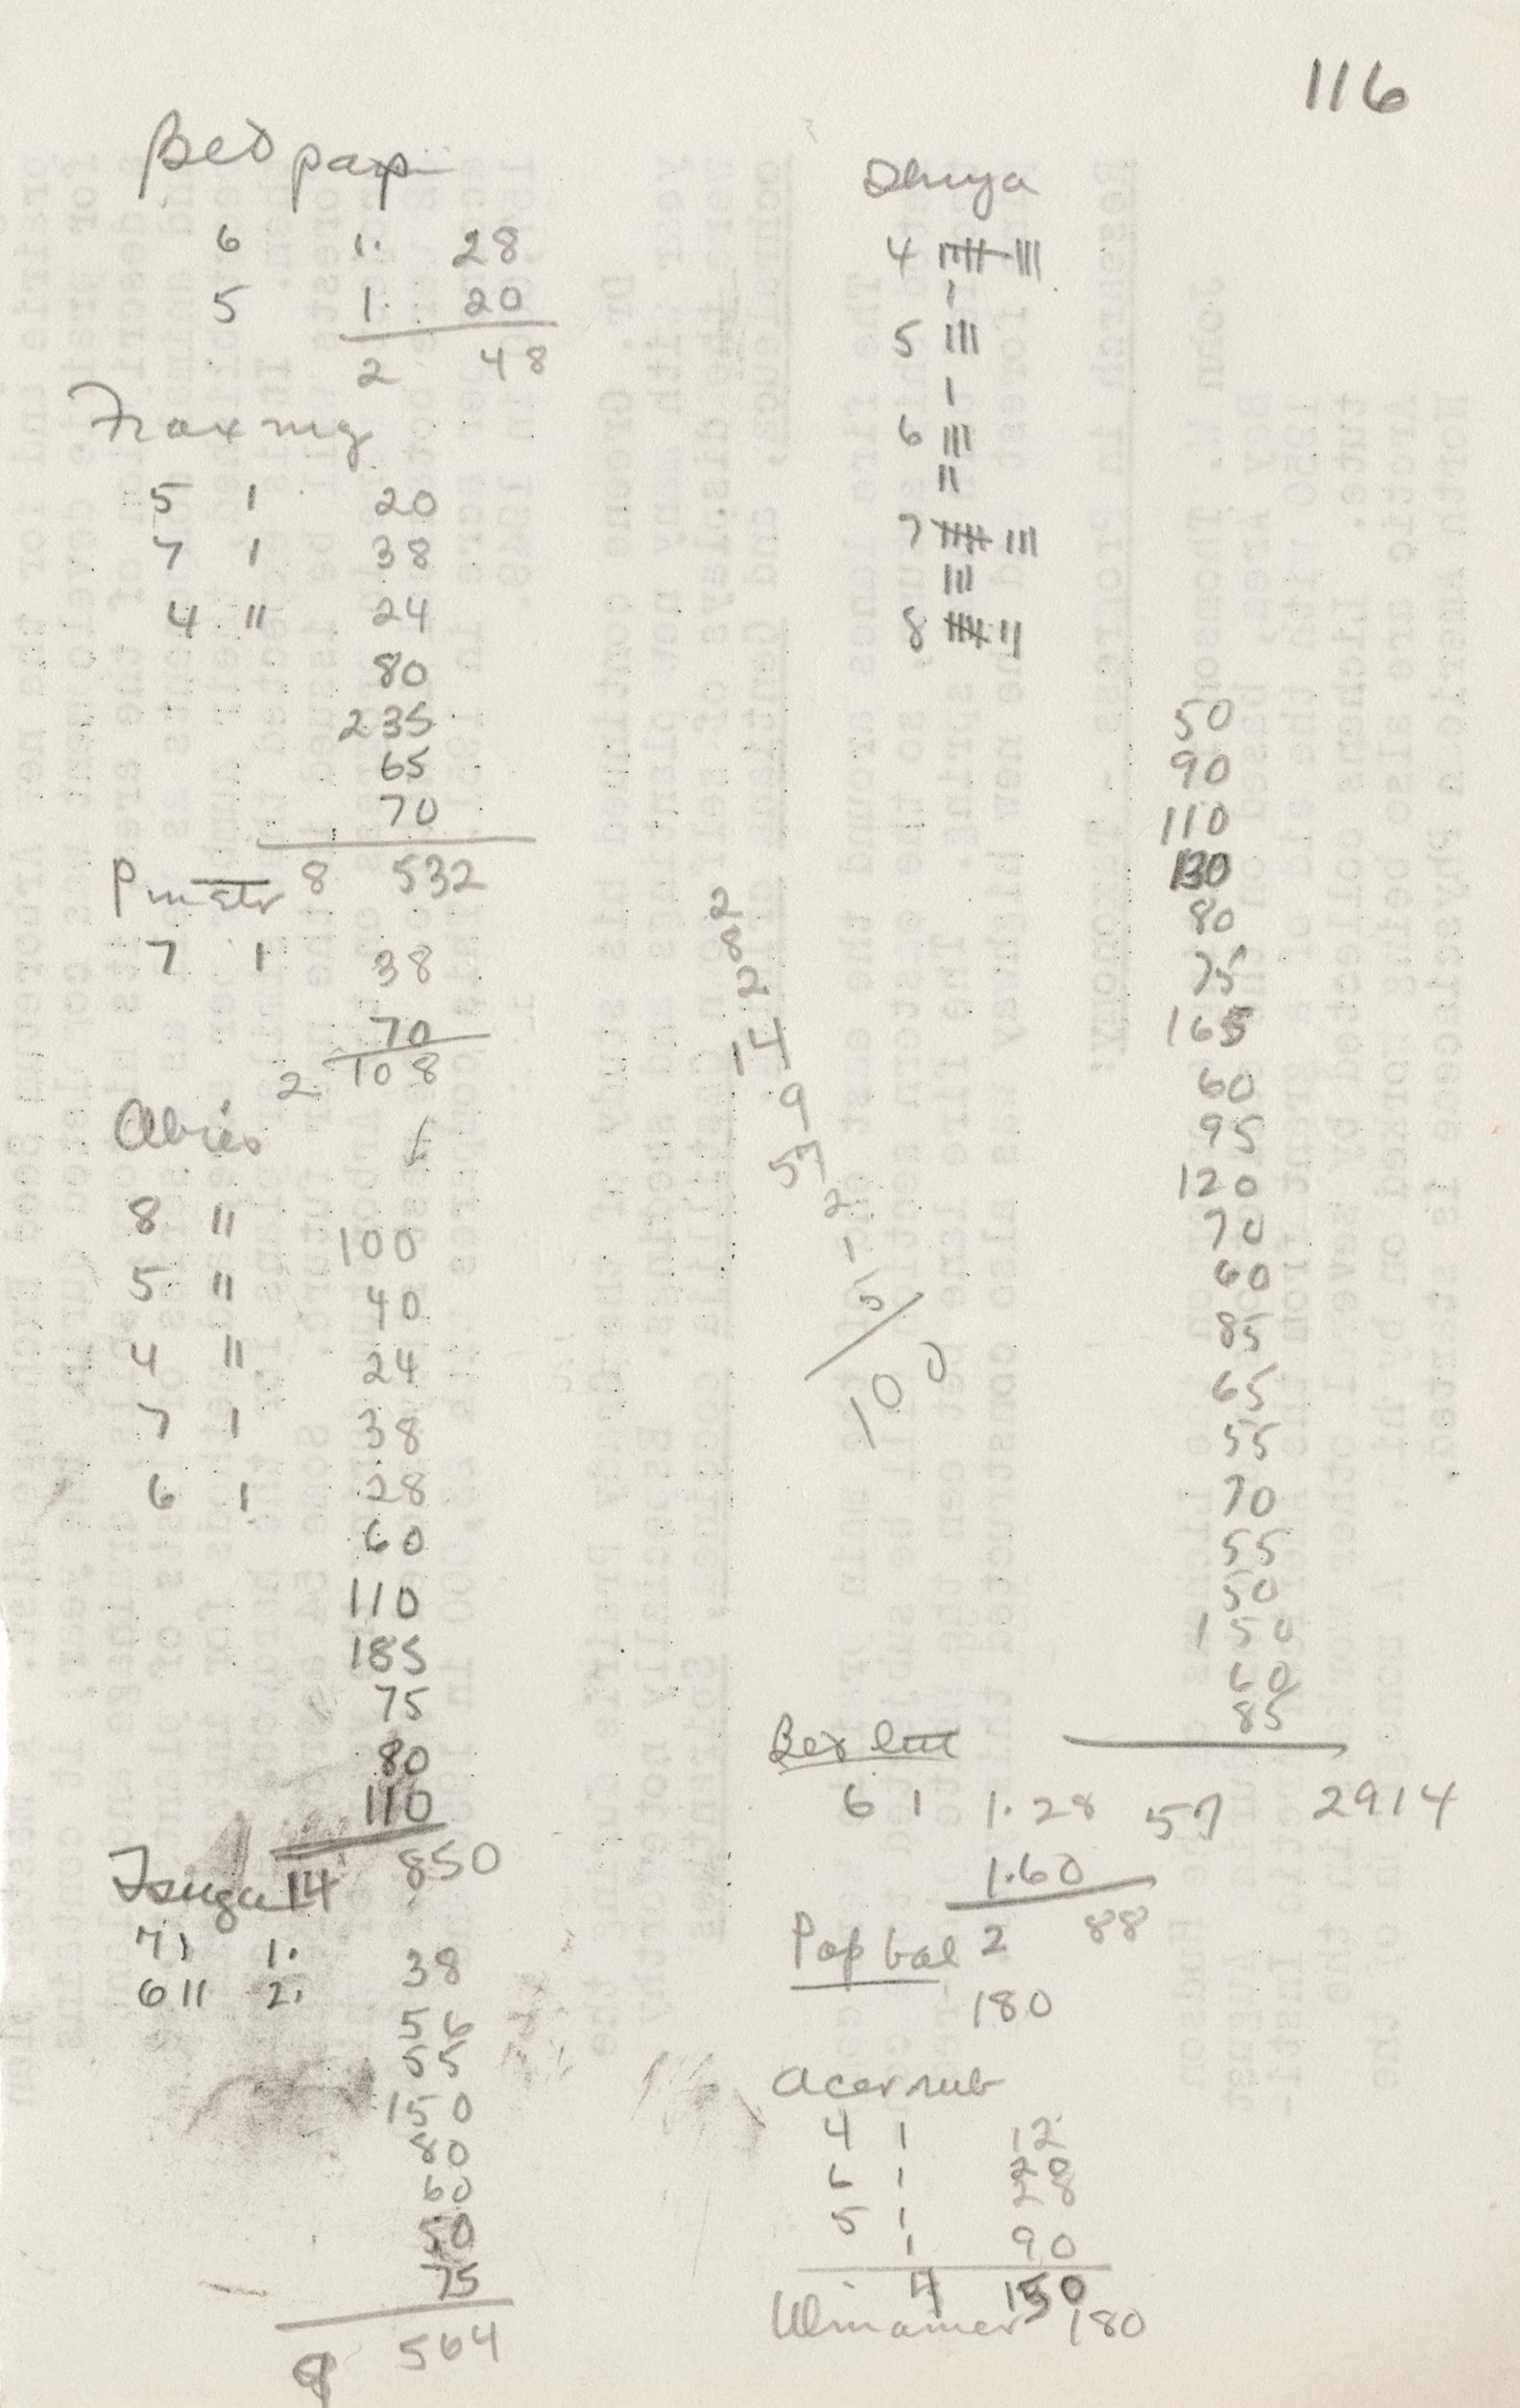 116
Bet pap
6 1. 28
5 1. 20
2 48
Frax nig
5 1 20
7 1 38
4 11 24
80
235
65
70
8 532
Pin str
7 1 38
70
2 108
Abies
8 11 100
5 11 40
4 11 24
7 1 38
6 1 28
60
110
185
75
80
110
14 850
Tsuga
7 1 1.
38
6 11 2.
56
55
150
80
60
50
75
9 564
Thuya
4 |||| |||
|
5 |||
|
6 |||
||
7 |||| |||
|||
8 |||| ||
50
90
110
130
80
75
165
60
95
120
70
60
85
65
55
70
55
50
150
60
85
57 2914
2
8
2
14
9
57
2
1
5
100
Bet lut
6 1 1.28
1.60
2 88
Pop bal
180
Acer rub
4 1 12
6 1 28
5 1 20
1 90
4 150
Ulm amer 180